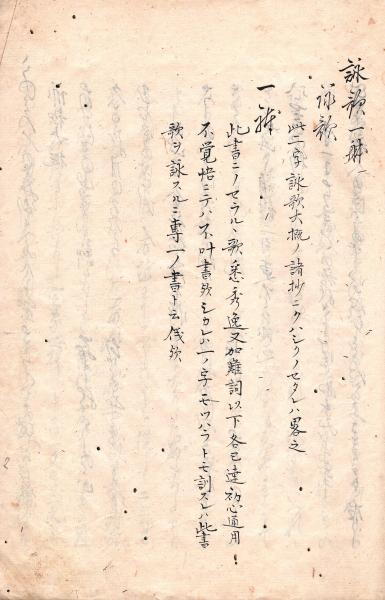 詠歌一躰
詠歌
此二字詠歌大概ノ諸抄ニクハシクノセタレハ畧之
一躰
此書ニノセラルヽ歌悉秀逸又加難詞以下各已達初心通用
不覚悟ニテハ不叶書歟シカレハ一ノ字モツハラトモ訓スレハ此書
歌ヲ詠スルニ専一ノ書ト云儀歟